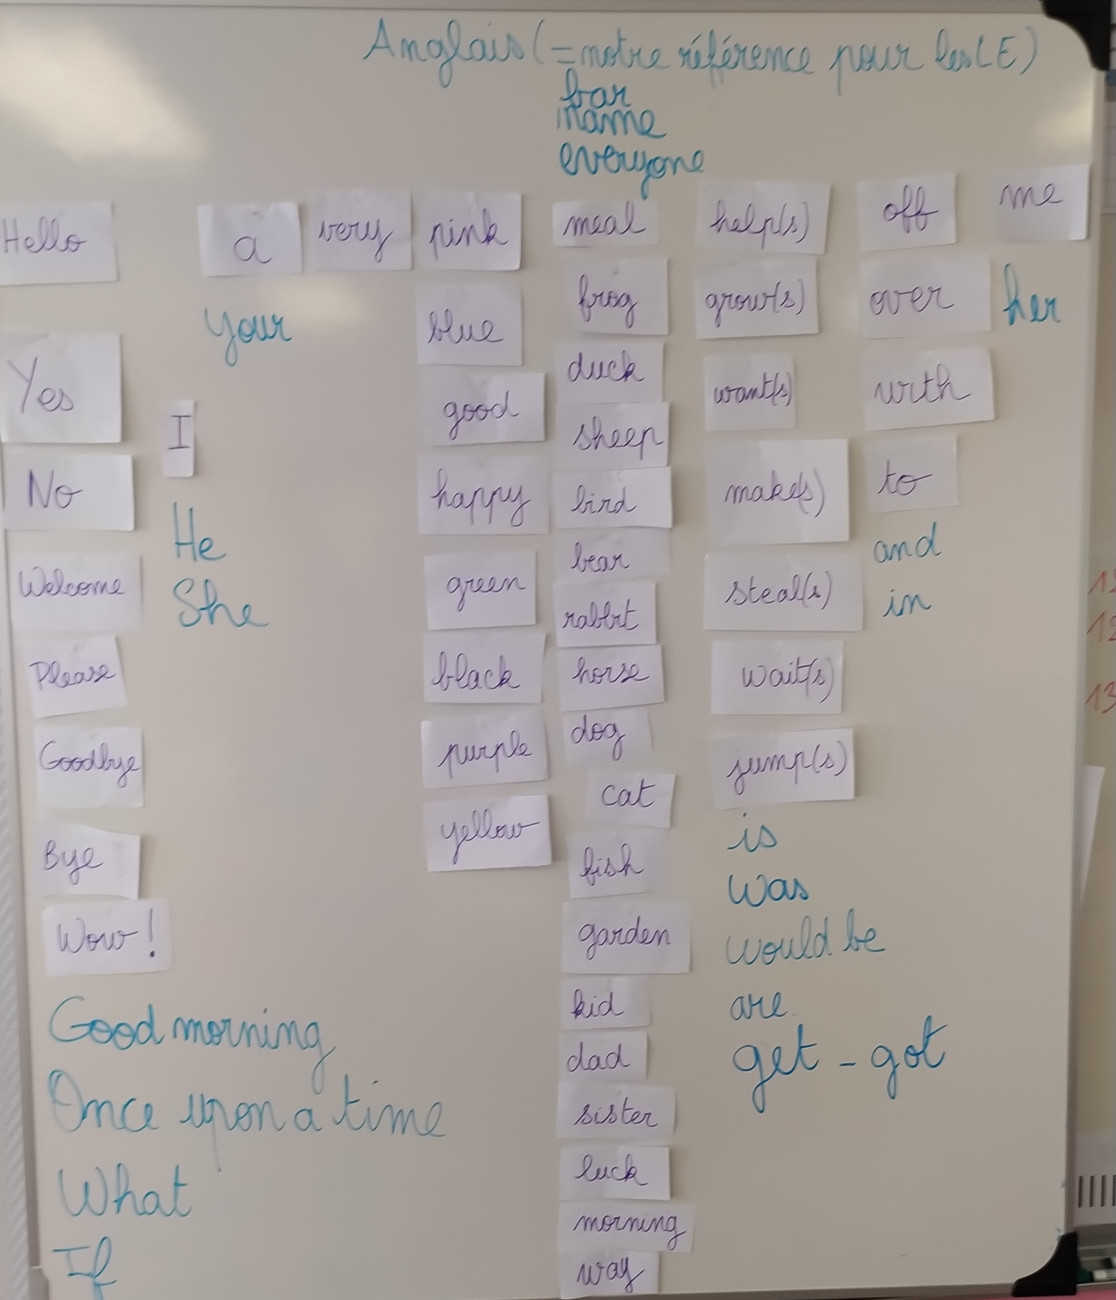 Anglais (= notre référence pour les LE)
bar
name
everyone
Hello
Yes
No
Welcome
Please
Goodbye
Bye
Wow!
Good morning
Once upon a time
What
If
I
He
She
a
your
very
pink
blue
good
happy
green
black
purple
yellow
meal
frog
duck
sheep
bird
bear
rabbit
horse
dog
cat
fish
garden
kid
dad
sister
luck
morning
way
help(s)
grow(s)
want(s)
make(s)
steal(s)
wait(s)
jump(s)
is
was
would be
are
get - got
off
over
with
to
and
in
me
her